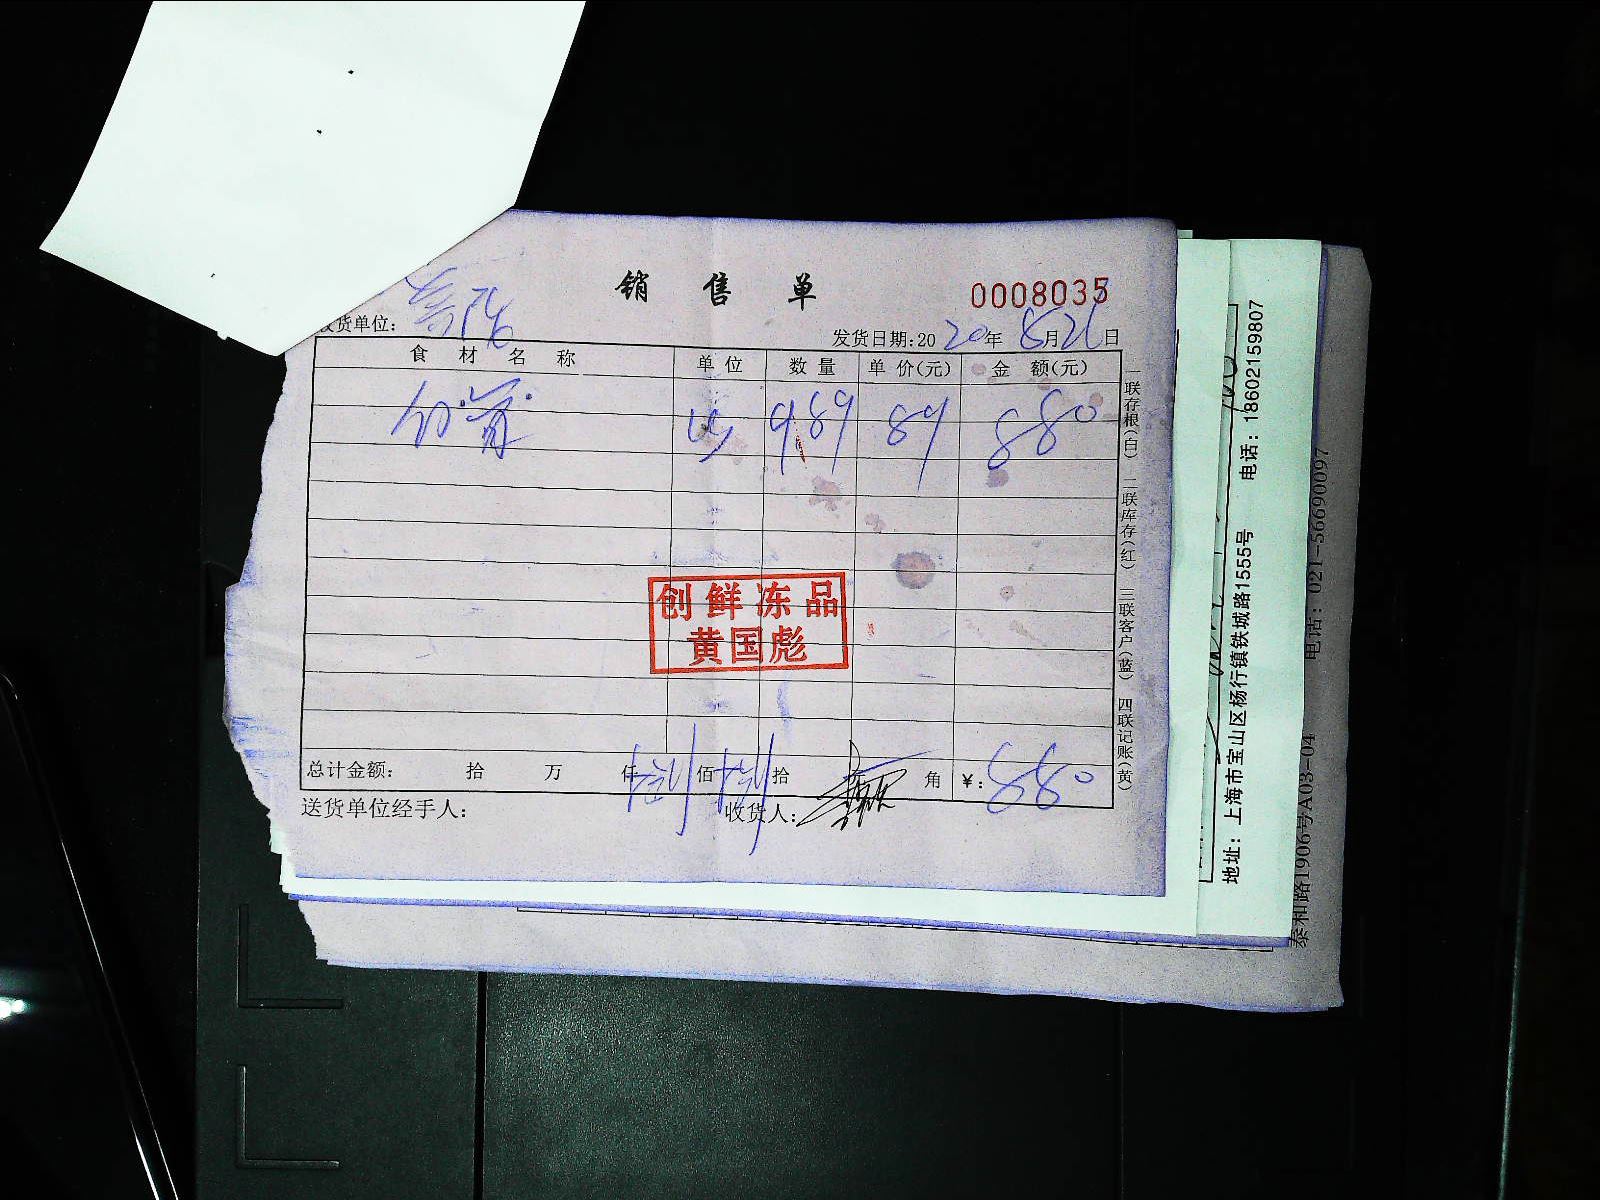 销售单
0008035
收货单位:
发货日期:2020年8月26日
食材名称 单位 数量 单价(元) 金额(元)
9.89 89 880
创鲜冻品
黄国彪
总计金额: 拾 万 仟 佰 拾 元 角 ¥:880
送货单位经手人: 收货人:
一联存根(白) 二联库存(红) 三联客户(蓝) 四联记账(黄)
地址:上海市宝山区杨行镇铁城路1555号 电话:18602159807
泰和路1906号A03-04 电话:021-56690097